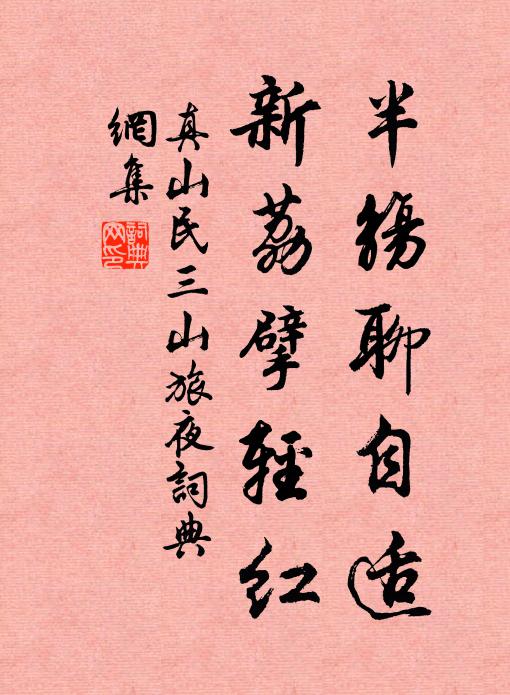 半觴聊自适
新荔擘輕紅
真山民三山旅夜詞典
網集
詞典網印